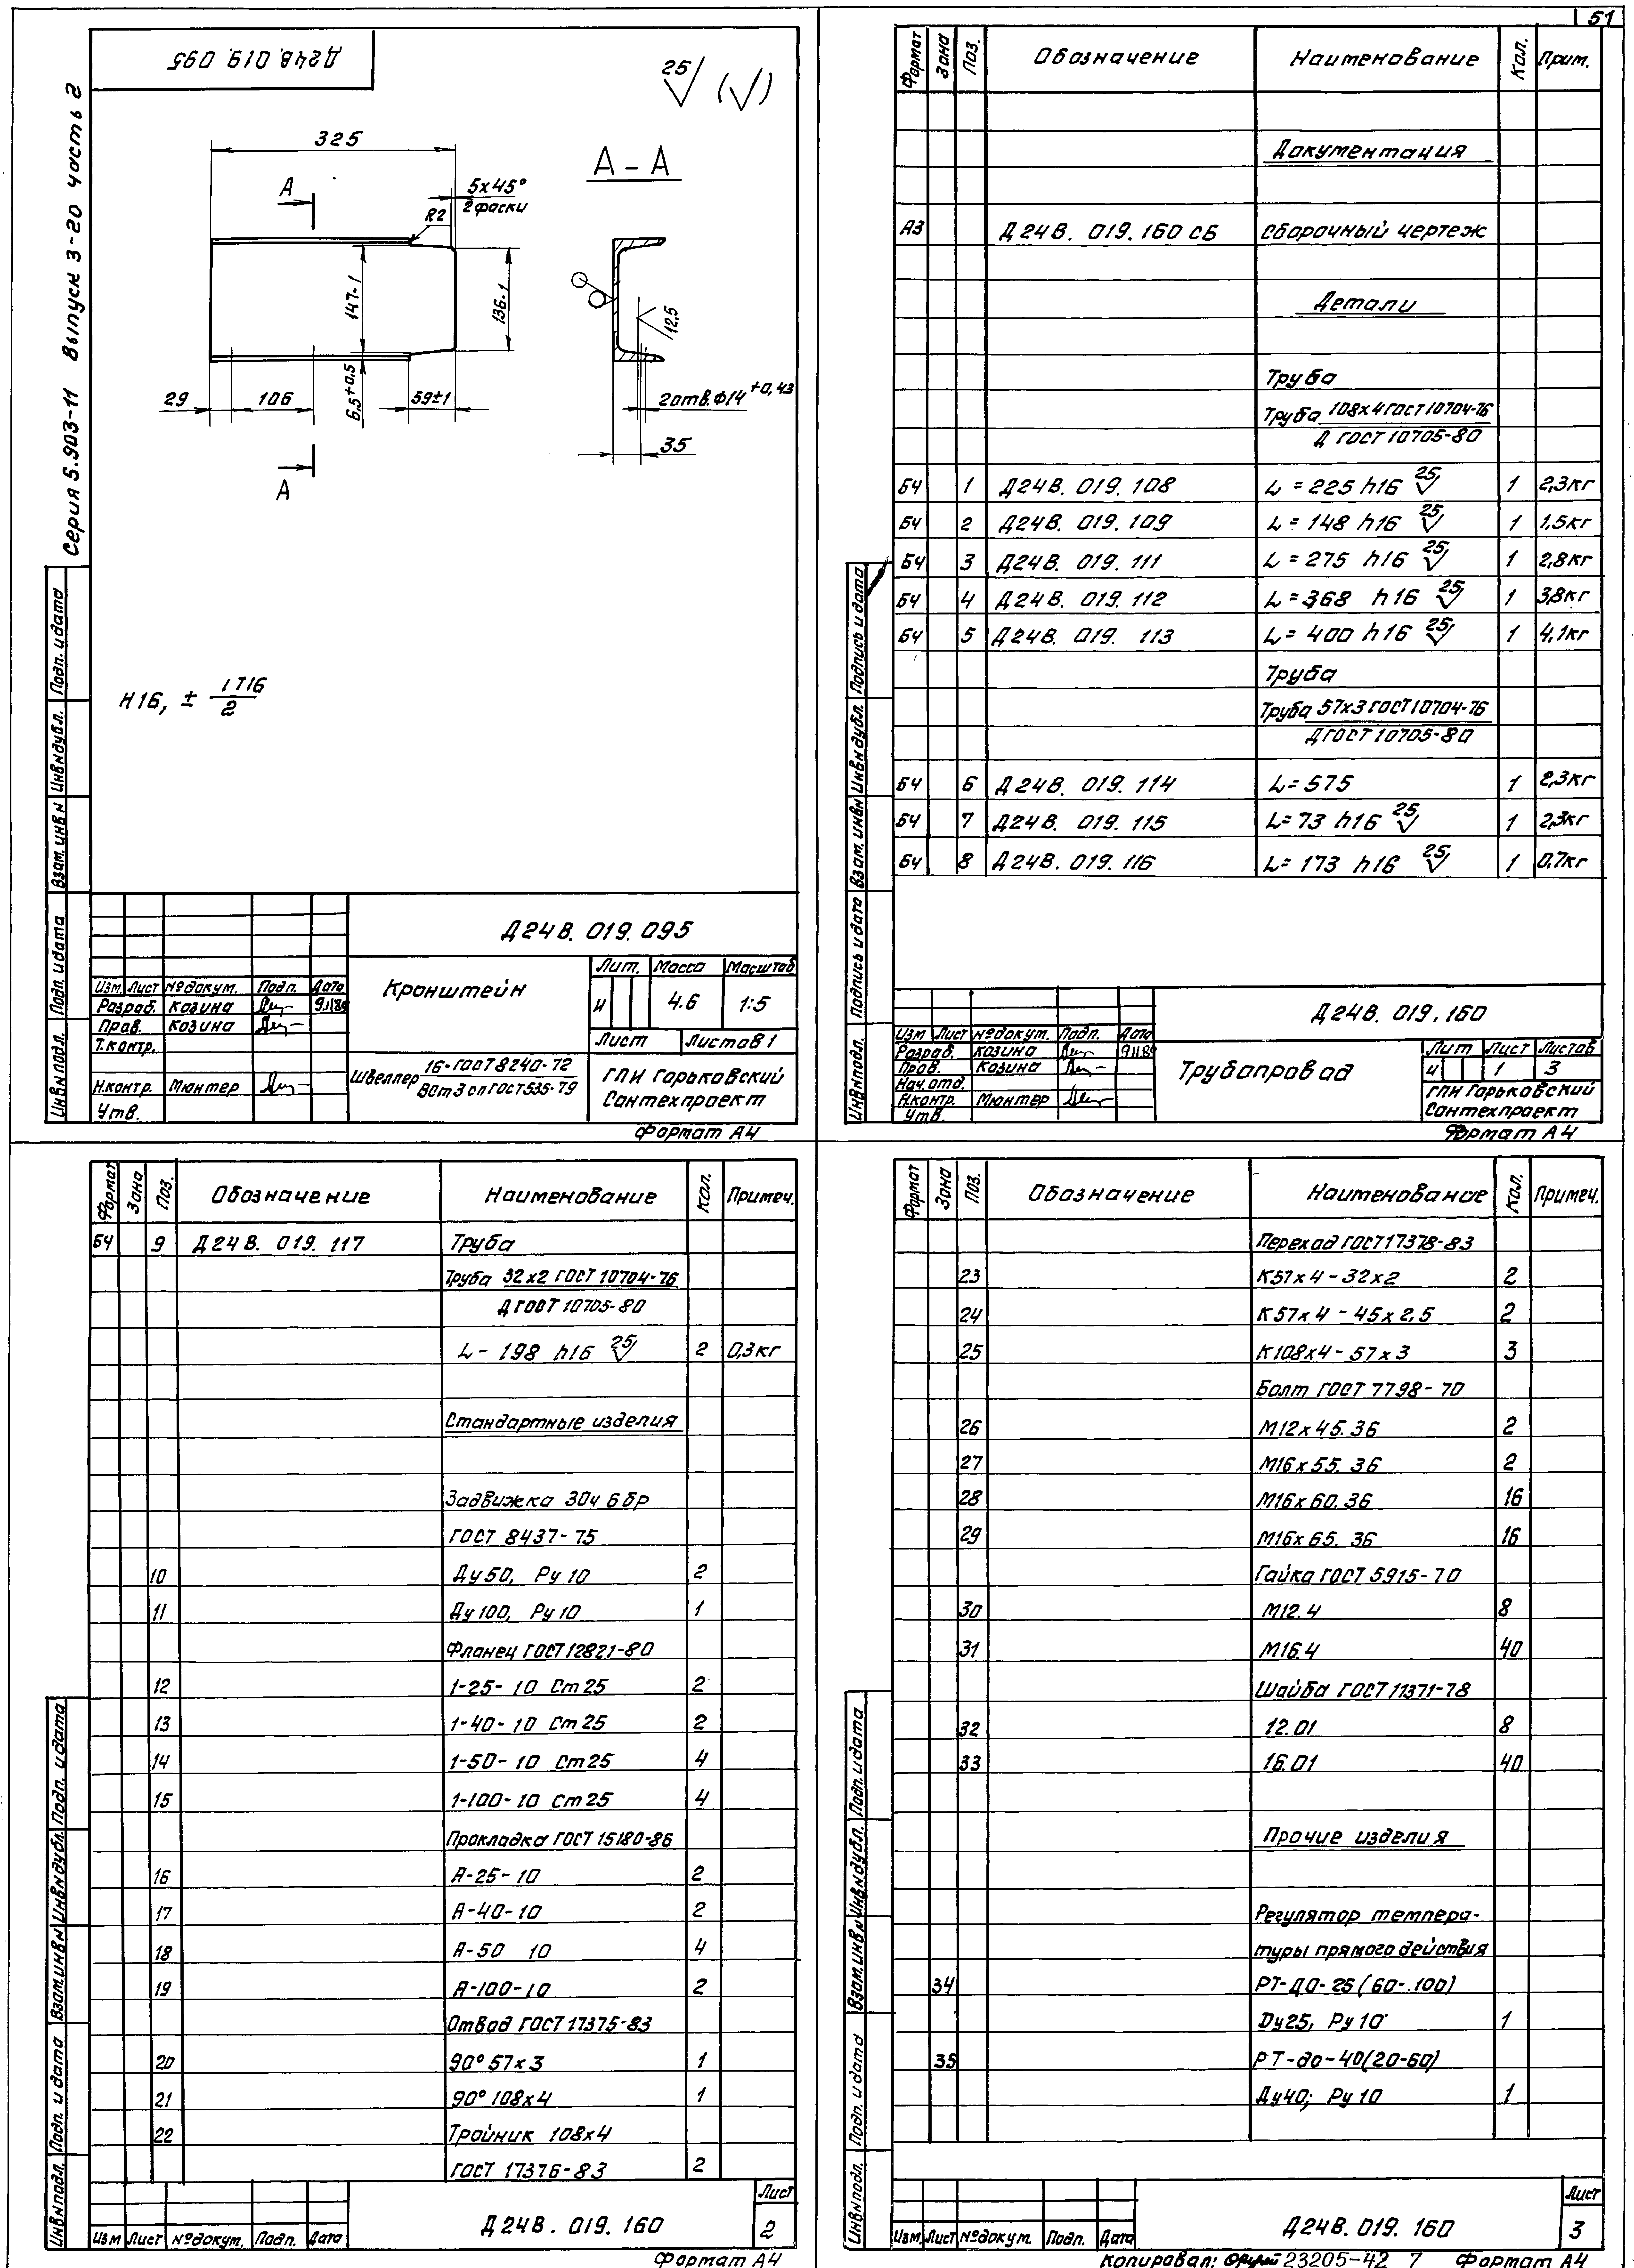 51
Серия 5.903-11 Выпуск 3-20 часть 2
Д24В.019.095
25 (√)
325
А
А - А
5х45°
2 фаски
R2
147-1
136-1
12,5
29
106
6,5±0,5
59±1
2отв.Ф14 +0,43
35
А
H16, ± IT16
2
Подп. и дата
Инв.№дубл.
Взам.инв.№
Подп. и дата
Инв.№подл.
Д24В. 019. 095
Изм. Лист №докум. Подп. Дата
Разраб. Козина 9.11.89
Пров. Козина
Т.контр.
Н.контр. Мюнтер
Утв.
Кронштейн
Лит. Масса Масштаб
И 4.6 1:5
Лист Листов 1
Швеллер 16-ГОСТ8240-72
ВСт3сп ГОСТ535-79
ГПИ Горьковский
Сантехпроект
Формат А4
Формат Зона Поз. Обозначение Наименование Кол. Прим.
Документация
А3 Д24В. 019. 160 СБ Сборочный чертеж
Детали
Труба
Труба 108х4 ГОСТ 10704-76
Д ГОСТ 10705-80
БЧ 1 Д24В. 019. 108 L = 225 h16 25 1 2,3кг
БЧ 2 Д24В. 019. 109 L = 148 h16 25 1 1,5кг
БЧ 3 Д24В. 019. 111 L = 275 h16 25 1 2,8кг
БЧ 4 Д24В. 019. 112 L = 368 h16 25 1 3,8кг
БЧ 5 Д24В. 019. 113 L = 400 h16 25 1 4,1кг
Труба
Труба 57х3 ГОСТ 10704-76
Д ГОСТ 10705-80
БЧ 6 Д24В. 019. 114 L= 575 1 2,3кг
БЧ 7 Д24В. 019. 115 L= 73 h16 25 1 2,3кг
БЧ 8 Д24В. 019. 116 L= 173 h16 25 1 0,7кг
Подпись и дата
Инв.№дубл.
Взам.инв.№
Подпись и дата
Инв.№подл.
Д24В. 019. 160
Изм Лист №докум. Подп. Дата
Разраб. Козина 9.11.89
Пров. Козина
Нач.отд.
Н.контр. Мюнтер
Утв.
Трубопровод
Лит Лист Листов
И 1 3
ГПИ Горьковский
Сантехпроект
Формат А4
Формат Зона Поз. Обозначение Наименование Кол. Примеч.
БЧ 9 Д24В. 019. 117 Труба
Труба 32х2 ГОСТ 10704-76
Д ГОСТ 10705-80
L - 198 h16 25 2 0,3кг
Стандартные изделия
Задвижка 30ч 6 бр
ГОСТ 8437-75
10 Ду 50, Ру 10 2
11 Ду 100, Ру 10 1
Фланец ГОСТ 12821-80
12 1-25-10 Ст25 2
13 1-40-10 Ст25 2
14 1-50-10 Ст25 4
15 1-100-10 Ст25 4
Прокладка ГОСТ 15180-86
16 А-25-10 2
17 А-40-10 2
18 А-50 10 4
19 А-100-10 2
Отвод ГОСТ 17375-83
20 90° 57х3 1
21 90° 108х4 1
22 Тройник 108х4
ГОСТ 17376-83 2
Подп. и дата
Инв.№дубл.
Взам.инв.№
Подп. и дата
Инв.№подл.
Изм Лист №докум. Подп. Дата
Д24В. 019. 160
Лист
2
Формат А4
Формат Зона Поз. Обозначение Наименование Кол. Примеч.
Переход ГОСТ 17378-83
23 К57х4-32х2 2
24 К57х4-45х2,5 2
25 К108х4-57х3 3
Болт ГОСТ 7798-70
26 М12х45.36 2
27 М16х55.36 2
28 М16х60.36 16
29 М16х65.36 16
Гайка ГОСТ 5915-70
30 М12.4 8
31 М16.4 40
Шайба ГОСТ 11371-78
32 12.01 8
33 16.01 40
Прочие изделия
Регулятор темпера-
туры прямого действия
34 РТ-ДО-25(60-.100)
Dу25, Ру 10 1
35 РТ-до-40(20-60)
Ду40; Ру 10 1
Подп. и дата
Инв.№дубл.
Взам.инв.№
Подп. и дата
Инв.№подл.
Изм. Лист №докум. Подп. Дата
Д24В. 019. 160
Лист
3
Копировал: 23205-42 7 Формат А4